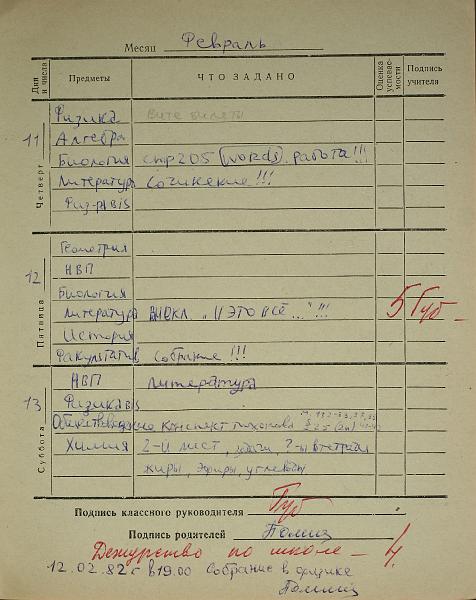 Месяц Февраль
Дни и числа Предметы ЧТО ЗАДАНО Оценка успеваемости Подпись учителя
Четверг 11
Физика
Алгебра
Биология стр 205 (words). работа!!!
Литература Сочинение!!!
Физ-ра
Пятница 12
Геометрия
НВП
Биология
Литература внекл. "И это всё..."!!! 5 Губ
История
Факультатив собрание!!!
Суббота 13
НВП Литература
Физика
Обществоведение конспект § 25 (2п)
Химия 2-й лист, задачи, ?-ы в тетради
жиры, эфиры, углеводы
Подпись классного руководителя Губ
Подпись родителей
Дежурство по школе - 4
12.02.82г в 19.00 Собрание в физике